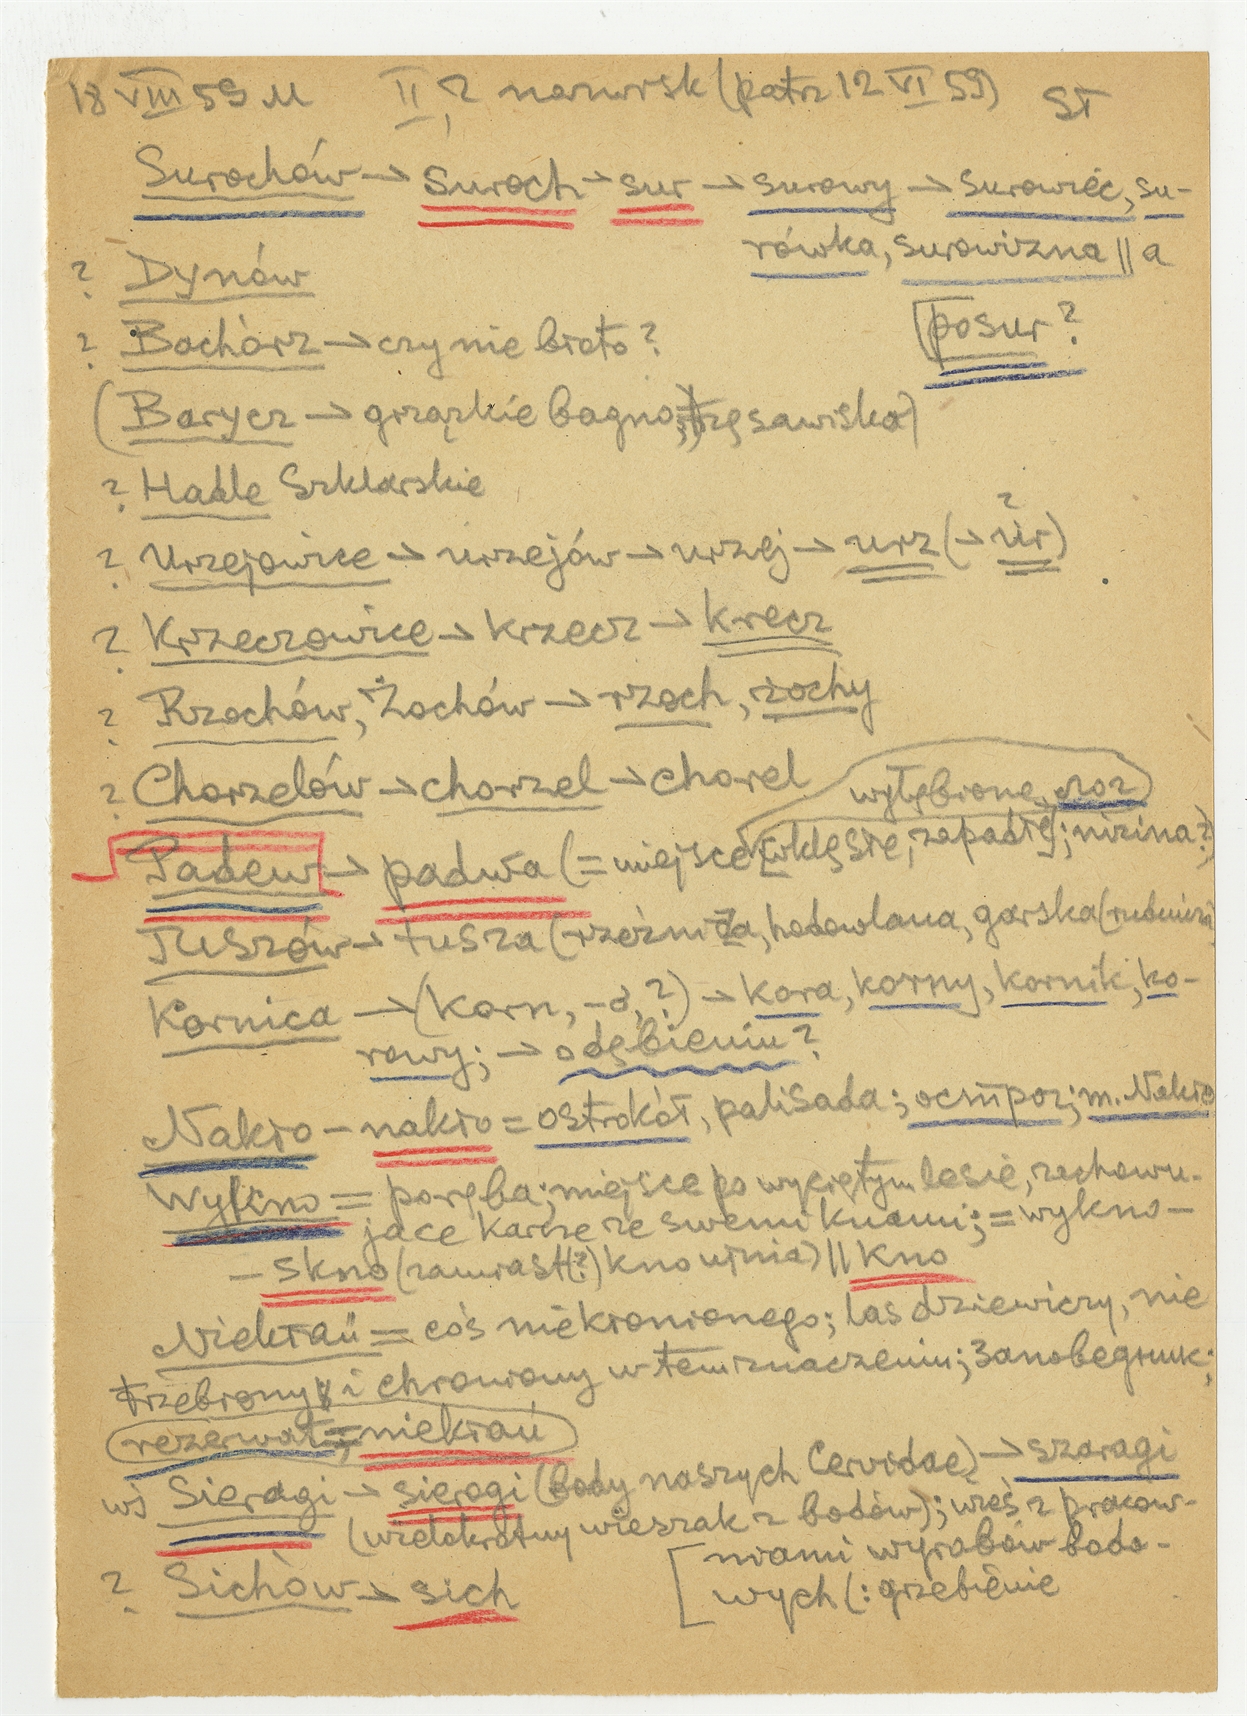 18 VIII 59 M II, 2 nazwisk (patrz 12 VI 59) ST
Surochów → suroch → sur → surowy → surowiec, su-
rówka, surowizna || a
? Dynów
[posur?
? Bachórz → czy nie błoto?
(Barycz → grząskie bagno, trzęsawisko)
? Hadle Szklarskie
? Urzejowice → urzejów → urzej → urz (→ ur) ?
? Krzeczowice → krzecz → krecz
? Rzochów, Żochów → rzoch, żochy
? Chorzelów → chorzel → chorel
wyłębione,
Padew → padwa (= miejsce [wklęsłe, zapadłe]; nizina?)
Tuszów → tusza (rzeźnicza, hodowlana,
Kornica → (korn, -ó, ?) → kora, korny, kornik, ko-
rowy; → odębieniu?
Nakło – nakło = ostrokół, palisada; острог; m. Nakło
Wykno = poręba; miejsce po wyciętym lesie, zachowu-
jące karcze ze swemi knami; = wykno –
– skno (zamiast(?) knowinia) || kno
Niekłań = coś niekłonionego; las dziewiczy, nie
trzebiony i chroniony w tem znaczeniu; заповедник;
rezerwat = niekłań
wś Sieragi → sieragi (body naszych Cervidae) → szaragi
(wielokrotny wieszak z bodów); wieś z pracow-
niami wyrobów bodo-
? Sichów → sich
wych (: grzebienie